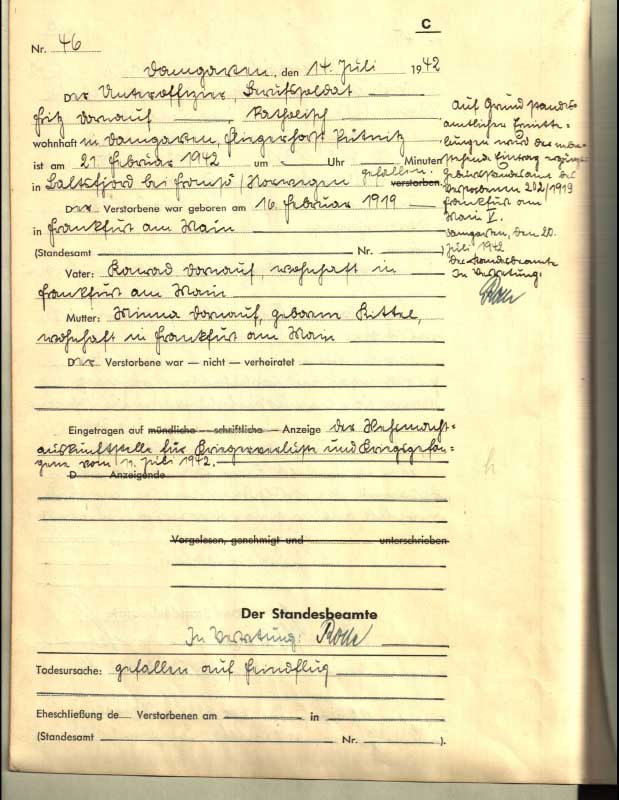 C
Nr. 46
Damgarten, den 14. Juli 1942
Der Unteroffizier, Berufssoldat
Fritz Dornauf Katholisch
wohnhaft in Damgarten, Fliegerhorst Pütnitz
ist am 21. Februar 1942 um Uhr Minuten
in Baltsfjord bei Tromsö / Norwegen gefallen. verstorben.
Der Verstorbene war geboren am 16. Februar 1919
in Frankfurt am Main
(Standesamt Nr. )
Vater: Konrad Dornauf, wohnhaft in
Frankfurt am Main
Mutter: Minna Dornauf, geborene Kittel,
wohnhaft in Frankfurt am Main
Der Verstorbene war — nicht — verheiratet
Eingetragen auf mündliche — schriftliche — Anzeige der Wehrmacht=
auskunftstelle für Kriegerverluste und Kriegsgefan=
gene vom 11. Juli 1942.
D Anzeigende
Vorgelesen, genehmigt und unterschrieben
Der Standesbeamte
In Vertretung:
Todesursache: gefallen auf Feindflug
Eheschließung de Verstorbenen am in
(Standesamt Nr. ).
Auf Grund standes=
amtlichen Ermitte=
lungen wird der neben=
stehende Eintrag ergänzt
Geburtsstandesamt des
Verstorbenen 202/1919
Frankfurt am
Main V.
Damgarten, den 20.
Juli 1942
Der Standesbeamte
In Vertretung: